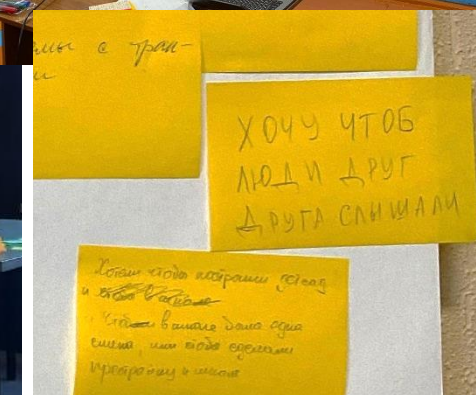 с тран-
ХОЧУ ЧТОБ
ЛЮДИ ДРУГ
ДРУГА СЛЫШАЛИ
Хотим чтобы построили детсад
и
в школе была одна
смена, или чтобы сделали
пристройку к школе